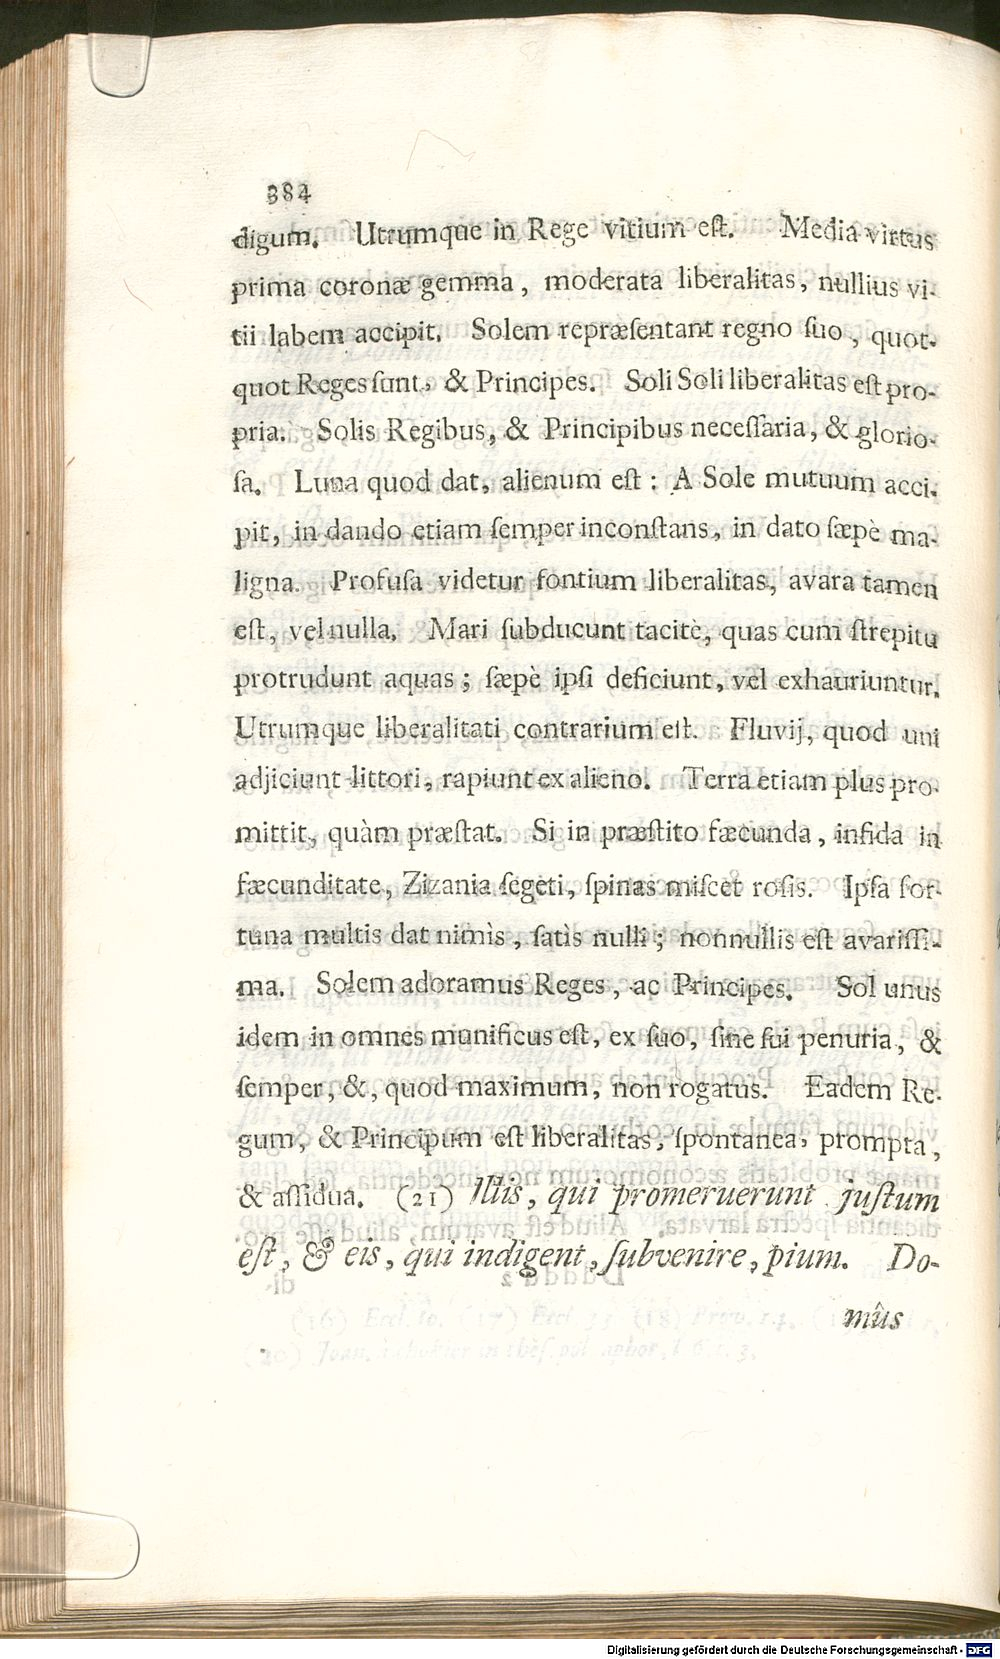 384
digum. Utrumque in Rege vitium eſt. Media virtus
prima coronæ gemma, moderata liberalitas, nullius vi-
tii labem accipit. Solem repræſentant regno ſuo, quot-
quot Reges ſunt, & Principes. Soli Soli liberalitas eſt pro-
pria. Solis Regibus, & Principibus neceſſaria, & glorio-
ſa. Luna quod dat, alienum eſt: A Sole mutuum acci-
pit, in dando etiam ſemper inconſtans, in dato ſæpè ma-
ligna. Profuſa videtur fontium liberalitas, avara tamen
eſt, vel nulla. Mari ſubducunt tacitè, quas cum ſtrepitu
protrudunt aquas; ſæpè ipſi deficiunt, vel exhauriuntur.
Utrumque liberalitati contrarium eſt. Fluvij, quod uni
adjiciunt littori, rapiunt ex alieno. Terra etiam plus pro-
mittit, quàm præſtat. Si in præſtito fæcunda, infida in
fæcunditate, Zizania ſegeti, ſpinas miſcet roſis. Ipſa for-
tuna multis dat nimìs, ſatìs nulli; nonnullis eſt avariſſi-
ma. Solem adoramus Reges, ac Principes. Sol unus
idem in omnes munificus eſt, ex ſuo, ſine ſui penuria, &
ſemper, &, quod maximum, non rogatus. Eadem Re-
gum, & Principum eſt liberalitas, ſpontanea, prompta,
& aſſidua. (21) Illis, qui promeruerunt juſtum
eſt, & eis, qui indigent, ſubvenire, pium. Do-
mûs
Digitalisierung gefördert durch die Deutsche Forschungsgemeinschaft - DFG